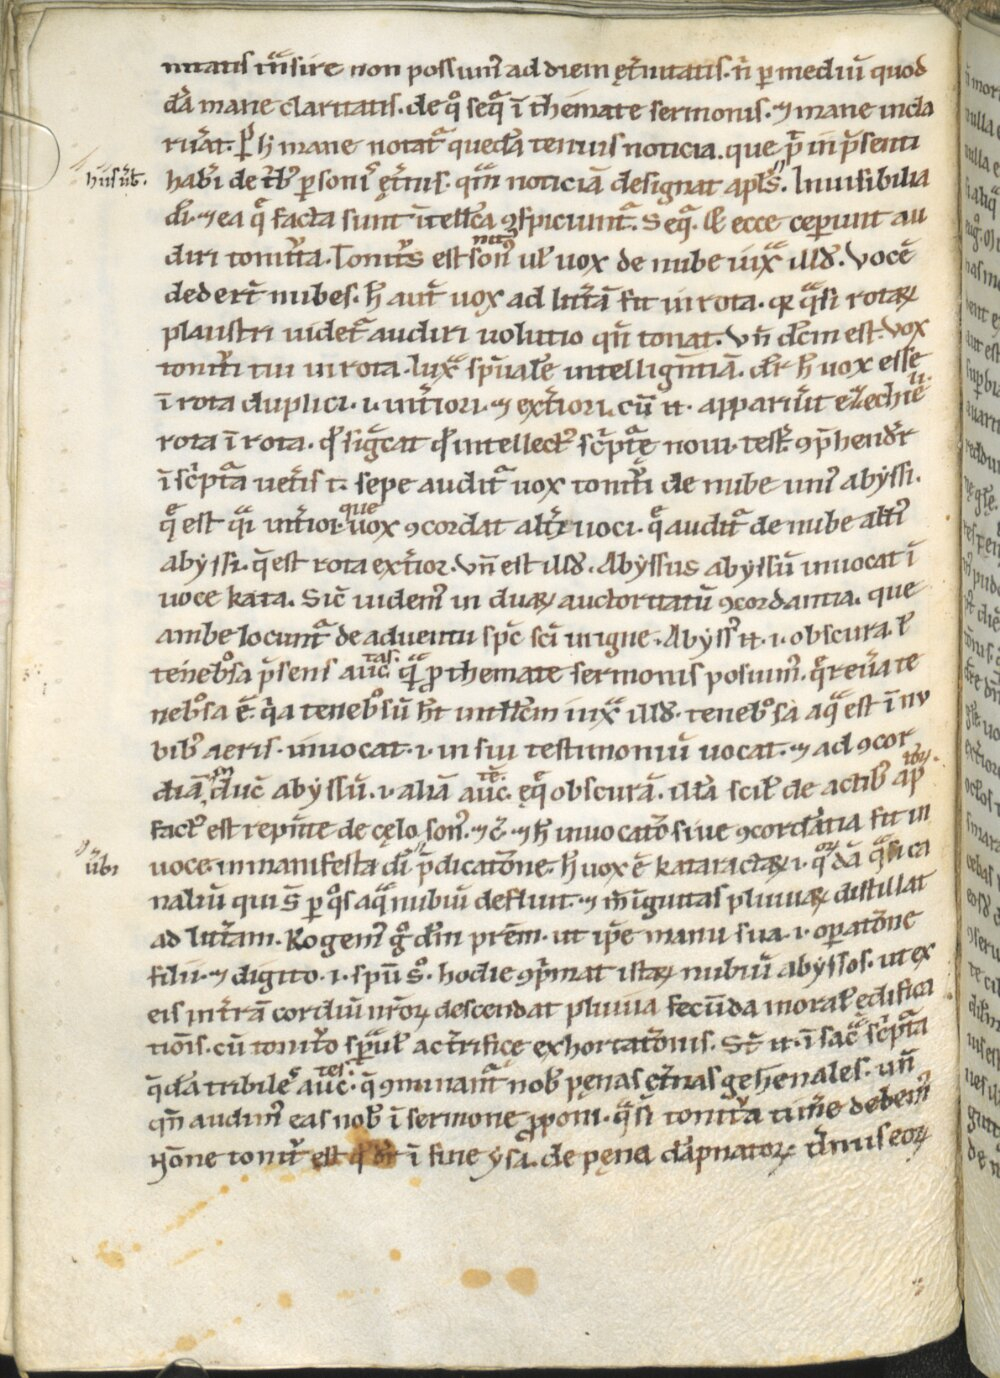 nitatis t̃nsire non possum᷒ ad diem ęt̃nitatis. n̄ p mediū quod
dã mane claritatis. de qͦ seqᷓ ī themate sermonis. ⁊ mane incla
ruãt. P h̄ mane notatᷓ quedã tenuis noticia. que pᷓ in p̃senti
hab̃i de tb᷒ psonis ęt̃nis. qm̄ noticiā designat apls̃. Inuisibilia
hui᷒ ũb.
di. ⁊ ea qᷓ facta sunt ītellc̃a ꝯspiciuntᷓ. Seqᷓ. & ecce ceperunt au
diri tonit̃ua. Tonit̃s est son᷒ ul̃ uox de nube iuxᷓ illᷘ. Vocē
dedert̃ nubes. h̄ aut̃ uox ad litt̃ā fit in rota. qꝛ qᷓsi rotaꝝ
plaustri uidet᷑ audiri uolutio qn̄ tonat. Vñ dc̃m est. Vox
tonit̃i tui in rota. Iuxᷓ spũalē intelligntiā. dr̃ h̄ uox esse
ī rota duplici. .i. int̃iori. ⁊ ext̃iori. cū .n. apparũit ezechieli
rota ī rota. qd̃ sigc̃at qd̃ intellect᷒ sc̃ptᷓe noui. test. ꝯp̃hendr̃t
ī sc̃ptᷓa uet̃is t. sepe auditᷓ uox tonit̃i de nube uni᷒ abyssi.
qᷓ est qᷓi int̃ior. que uox ꝯcordat alt̃i uoci. qᷓ auditᷓ de nube alt̃i᷒
abyssi. q̃ est rota ext̃ior. Vñ est illᷘ. Abyssus abyssū inuocat ī
uoce kata. Sic̃ uidem᷒ in duaꝝ auctoritatū ꝯcordantia. que
ambe locuntᷓ de aduentu spc̃ sci in igne. Abyss᷒ .n. .i. obscura. ł
teneb̃sa p̃sens auc̃tas. qᷓ ꝓ themate sermonis posuim᷒. q̃ reũa te
neb̃sa ē. qᷓa teneb̃sū ht̃ intellc̃m iuxᷓ illᷘ. teneb̃sa aqᷓ est ī nu
bib᷒ aeris. inuocat. .i. in sui testimoniū uocat. ⁊ ad ꝯcor
diā suā duc̃ abyssū. .i. aliā auc̃tē. ęqᷓ obscurā. illã scil̃ de actib᷒ ap̃loꝝ.
fact᷒ est repñte de cęlo son᷒. ⁊ c̃. ⁊ h̄ inuocat̃o siue ꝯcordãtia fit in
uoce. in manifesta di p̃dicatõne. h̄ uox ē kataractaꝝ .i. qͦꝝdã qᷓsi ca
ũbi
naliū quis p qͦs aqᷓ nubiū defluit. ⁊ in̄ iguttas pluuiaꝝ distillat
ad litt̃am. Rogem᷒ gͦ dm̃ prēm. ut ip̃e manu sua .i. operatõne
filii. ⁊ digito .i. spũ sͦ. hodie ꝯp̃mat istaꝝ nubiū abyssos. ut ex
eis in t̃rā cordiū nr̃oꝝ descendat pluuia fecūda moral̃ edifica
tiõis. cū tonit̃o spũal̃ ac t̃rifice exhortatõnis. St̃ .n. ī sacᷓ sc̃ptᷓa
q̃dā tribiles auc̃tes. q̃ ꝯminantᷓ nob᷒ pęnas ęt̃nas gehenales. uñ
qn̄ audim᷒ eas nob᷒ ī sermone ꝓponi. qᷓsi tonit̃a tim̃e debem᷒
hõne tonit̃ est qd̃ dr̃ ī fine ysa. de pęna dãpnatoꝝ. Ũmis eoꝝ